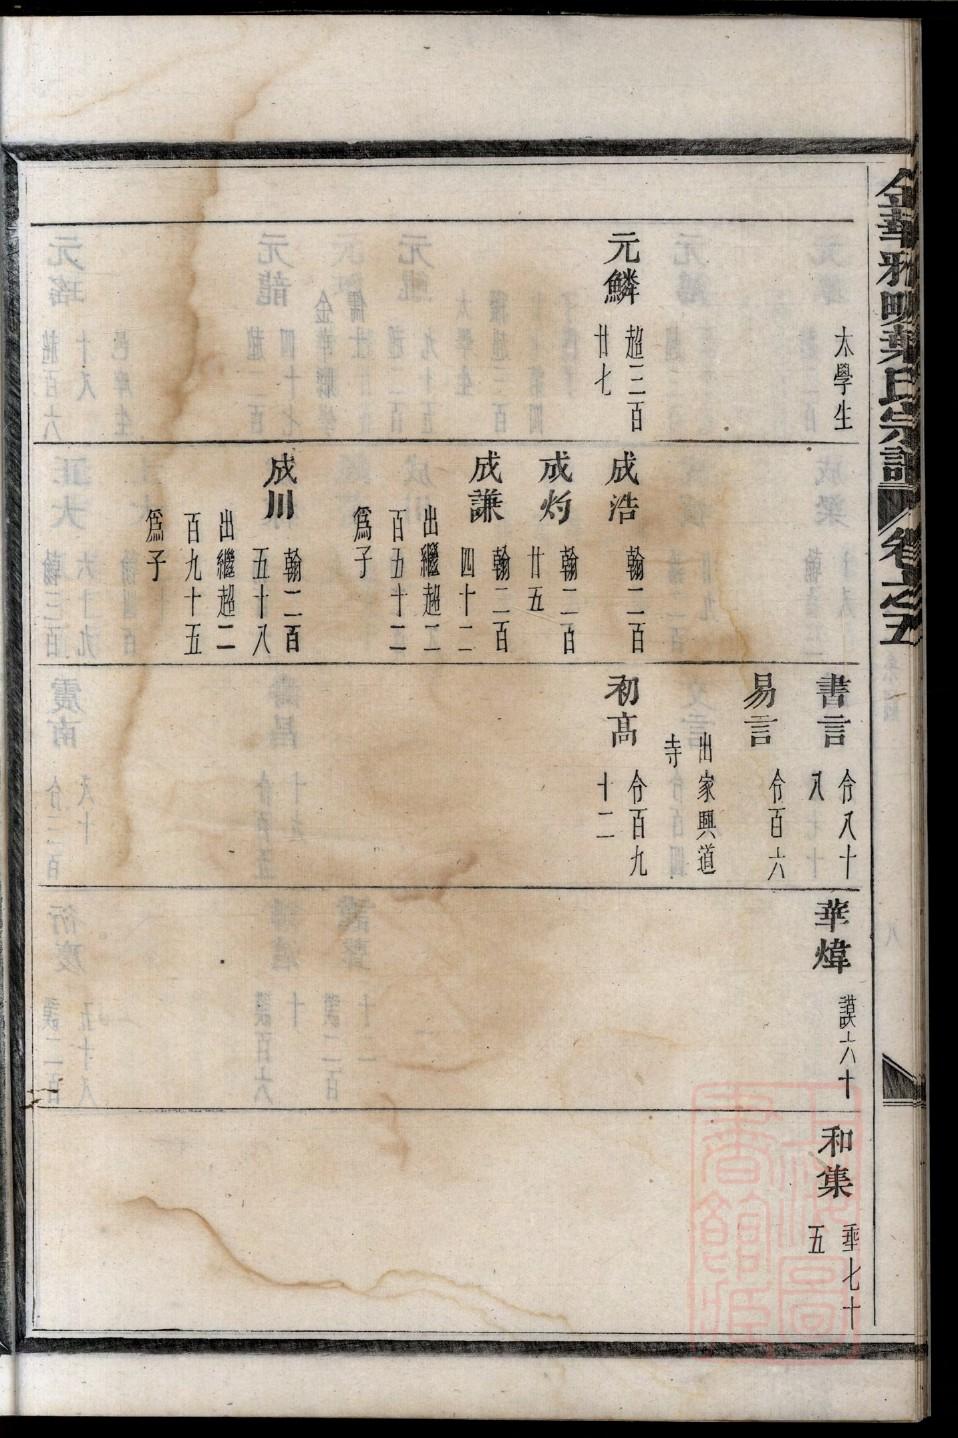 金華雅畈葉氏宗譜 卷之五
太學生
元鱗 超三百
廿七
成浩 翰二百
成灼 翰二百
廿五
成謙 翰二百
四十二
出繼超二
百五十二
爲子
成川 翰二百
五十八
出繼超二
百九十五
爲子
書言 令八十
八
易言 令百六
出家興道
寺
初高 令百九
十二
華煒 謨六十
和集 垂七十
五